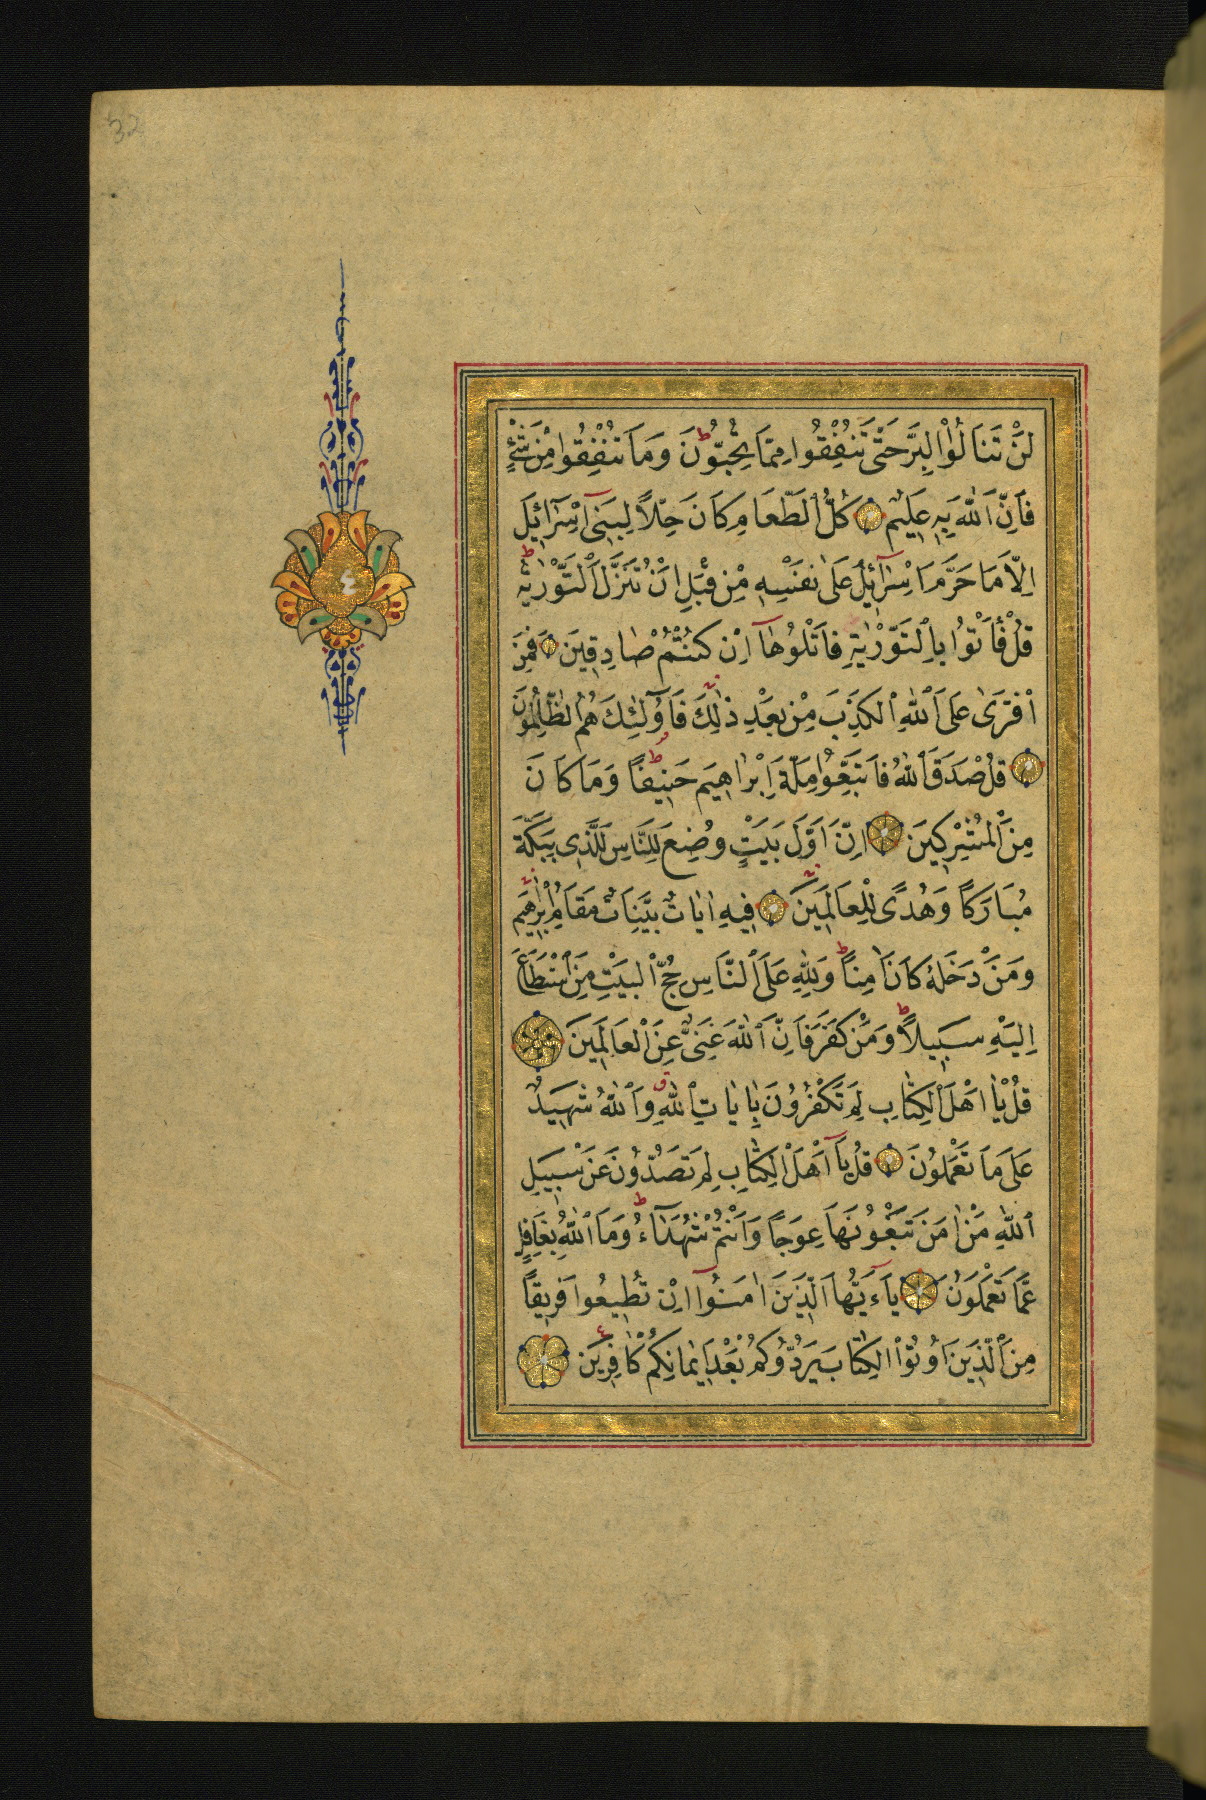 32
لَنْ تَنَالُوا الْبِرَّ حَتّٰى تُنْفِقُوا مِمَّا تُحِبُّونَ ط وَمَا تُنْفِقُوا مِنْ شَيْءٍ
فَاِنَّ اللّٰهَ بِهِ عَلِيمٌ كُلُّ الطَّعَامِ كَانَ حِلًّا لِبَنِي اِسْرَآئِيلَ
اِلَّا مَا حَرَّمَ اِسْرَآئِيلُ عَلٰى نَفْسِهِ مِنْ قَبْلِ اَنْ تُنَزَّلَ التَّوْرٰيةُ ط
قُلْ فَأْتُوا بِالتَّوْرٰيةِ فَاتْلُوهَآ اِنْ كُنْتُمْ صَادِقِينَ فَمَنِ
افْتَرٰى عَلَى اللّٰهِ الْكَذِبَ مِنْ بَعْدِ ذٰلِكَ فَاُولٰٓئِكَ هُمُ الظَّالِمُونَ
قُلْ صَدَقَ اللّٰهُ فَاتَّبِعُوا مِلَّةَ اِبْرَاهِيمَ حَنِيفًا ط وَمَا كَانَ
مِنَ الْمُشْرِكِينَ اِنَّ اَوَّلَ بَيْتٍ وُضِعَ لِلنَّاسِ لَلَّذِي بِبَكَّةَ
مُبَارَكًا وَهُدًى لِلْعَالَمِينَ فِيهِ اٰيَاتٌ بَيِّنَاتٌ مَقَامُ اِبْرٰهِيمَ
وَمَنْ دَخَلَهُ كَانَ اٰمِنًا ط وَلِلّٰهِ عَلَى النَّاسِ حِجُّ الْبَيْتِ مَنِ اسْتَطَاعَ
اِلَيْهِ سَبِيلًا ط وَمَنْ كَفَرَ فَاِنَّ اللّٰهَ غَنِيٌّ عَنِ الْعَالَمِينَ
قُلْ يَا اَهْلَ الْكِتَابِ لِمَ تَكْفُرُونَ بِاٰيَاتِ اللّٰهِ ق وَاللّٰهُ شَهِيدٌ
عَلٰى مَا تَعْمَلُونَ قُلْ يَآ اَهْلَ الْكِتَابِ لِمَ تَصُدُّونَ عَنْ سَبِيلِ
اللّٰهِ مَنْ اٰمَنَ تَبْغُونَهَا عِوَجًا وَاَنْتُمْ شُهَدَآءُ ط وَمَا اللّٰهُ بِغَافِلٍ
عَمَّا تَعْمَلُونَ يَآءَيُّهَا الَّذِينَ اٰمَنُوآ اِنْ تُطِيعُوا فَرِيقًا
مِنَ الَّذِينَ اُوتُوا الْكِتَابَ يَرُدُّوكُمْ بَعْدَ اِيمَانِكُمْ كَافِرِينَ